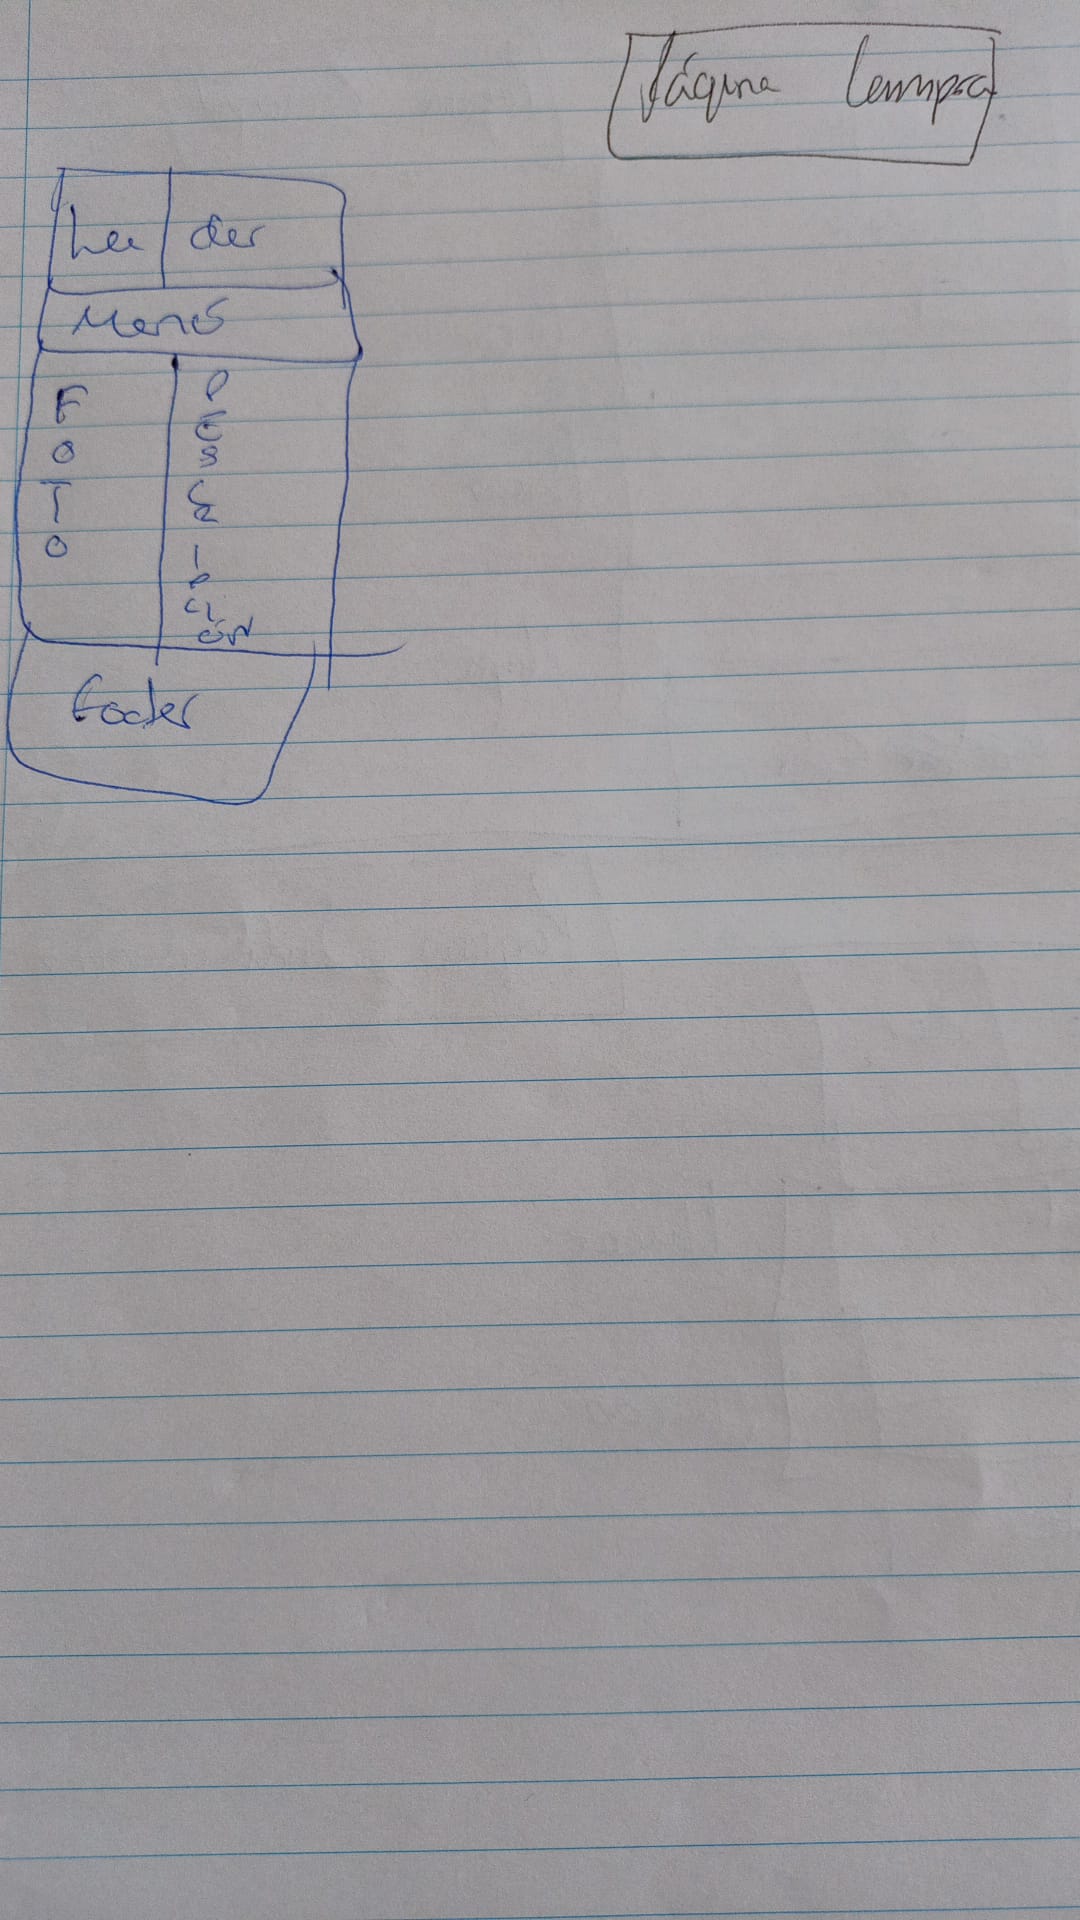 Página Compra
hea der
Menú
F
O
T
O
D
E
S
C
R
I
P
CI
ÓN
fooder